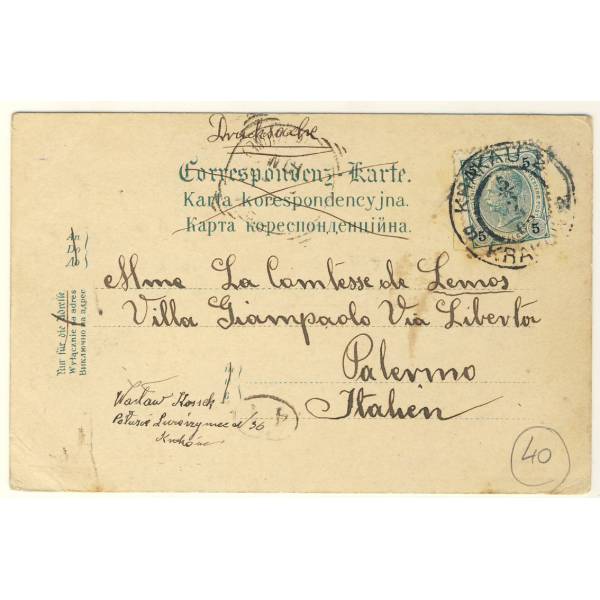 Drucksache
Correspondenz-Karte.
Karta korespondencyjna.
Карта кореспонденційна.
5
5 5
KRAKAU 2
KRAKÓW 2
Nur für die Adresse
Wyłącznie na adres
Виключно на адрес
Mme La Comtesse de Lemos
Villa Giampaolo Via Liberta
Palermo
Italien
Wacław
36
Kraków
40